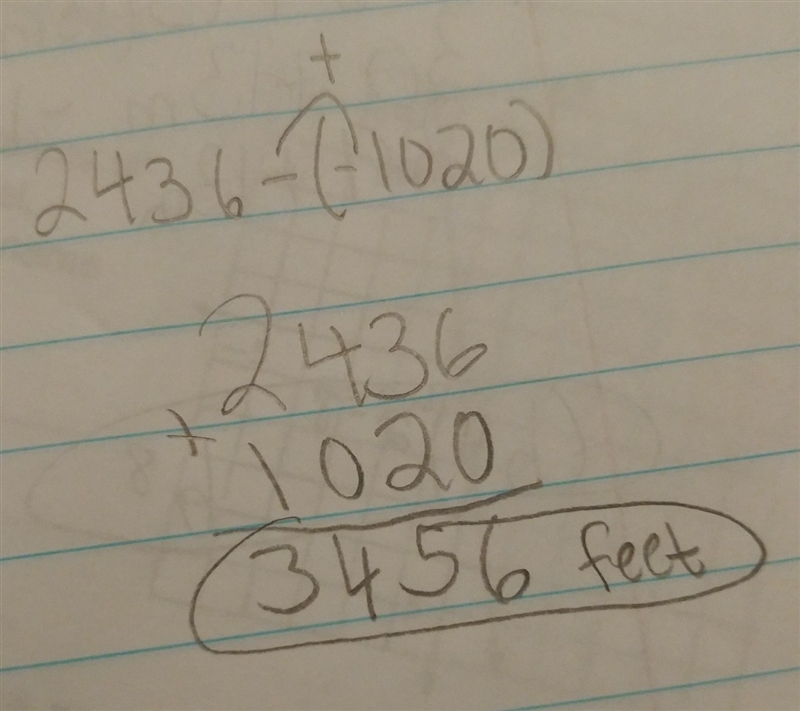 +
2436-(-1020)
2436
+ 1020
3456 feet